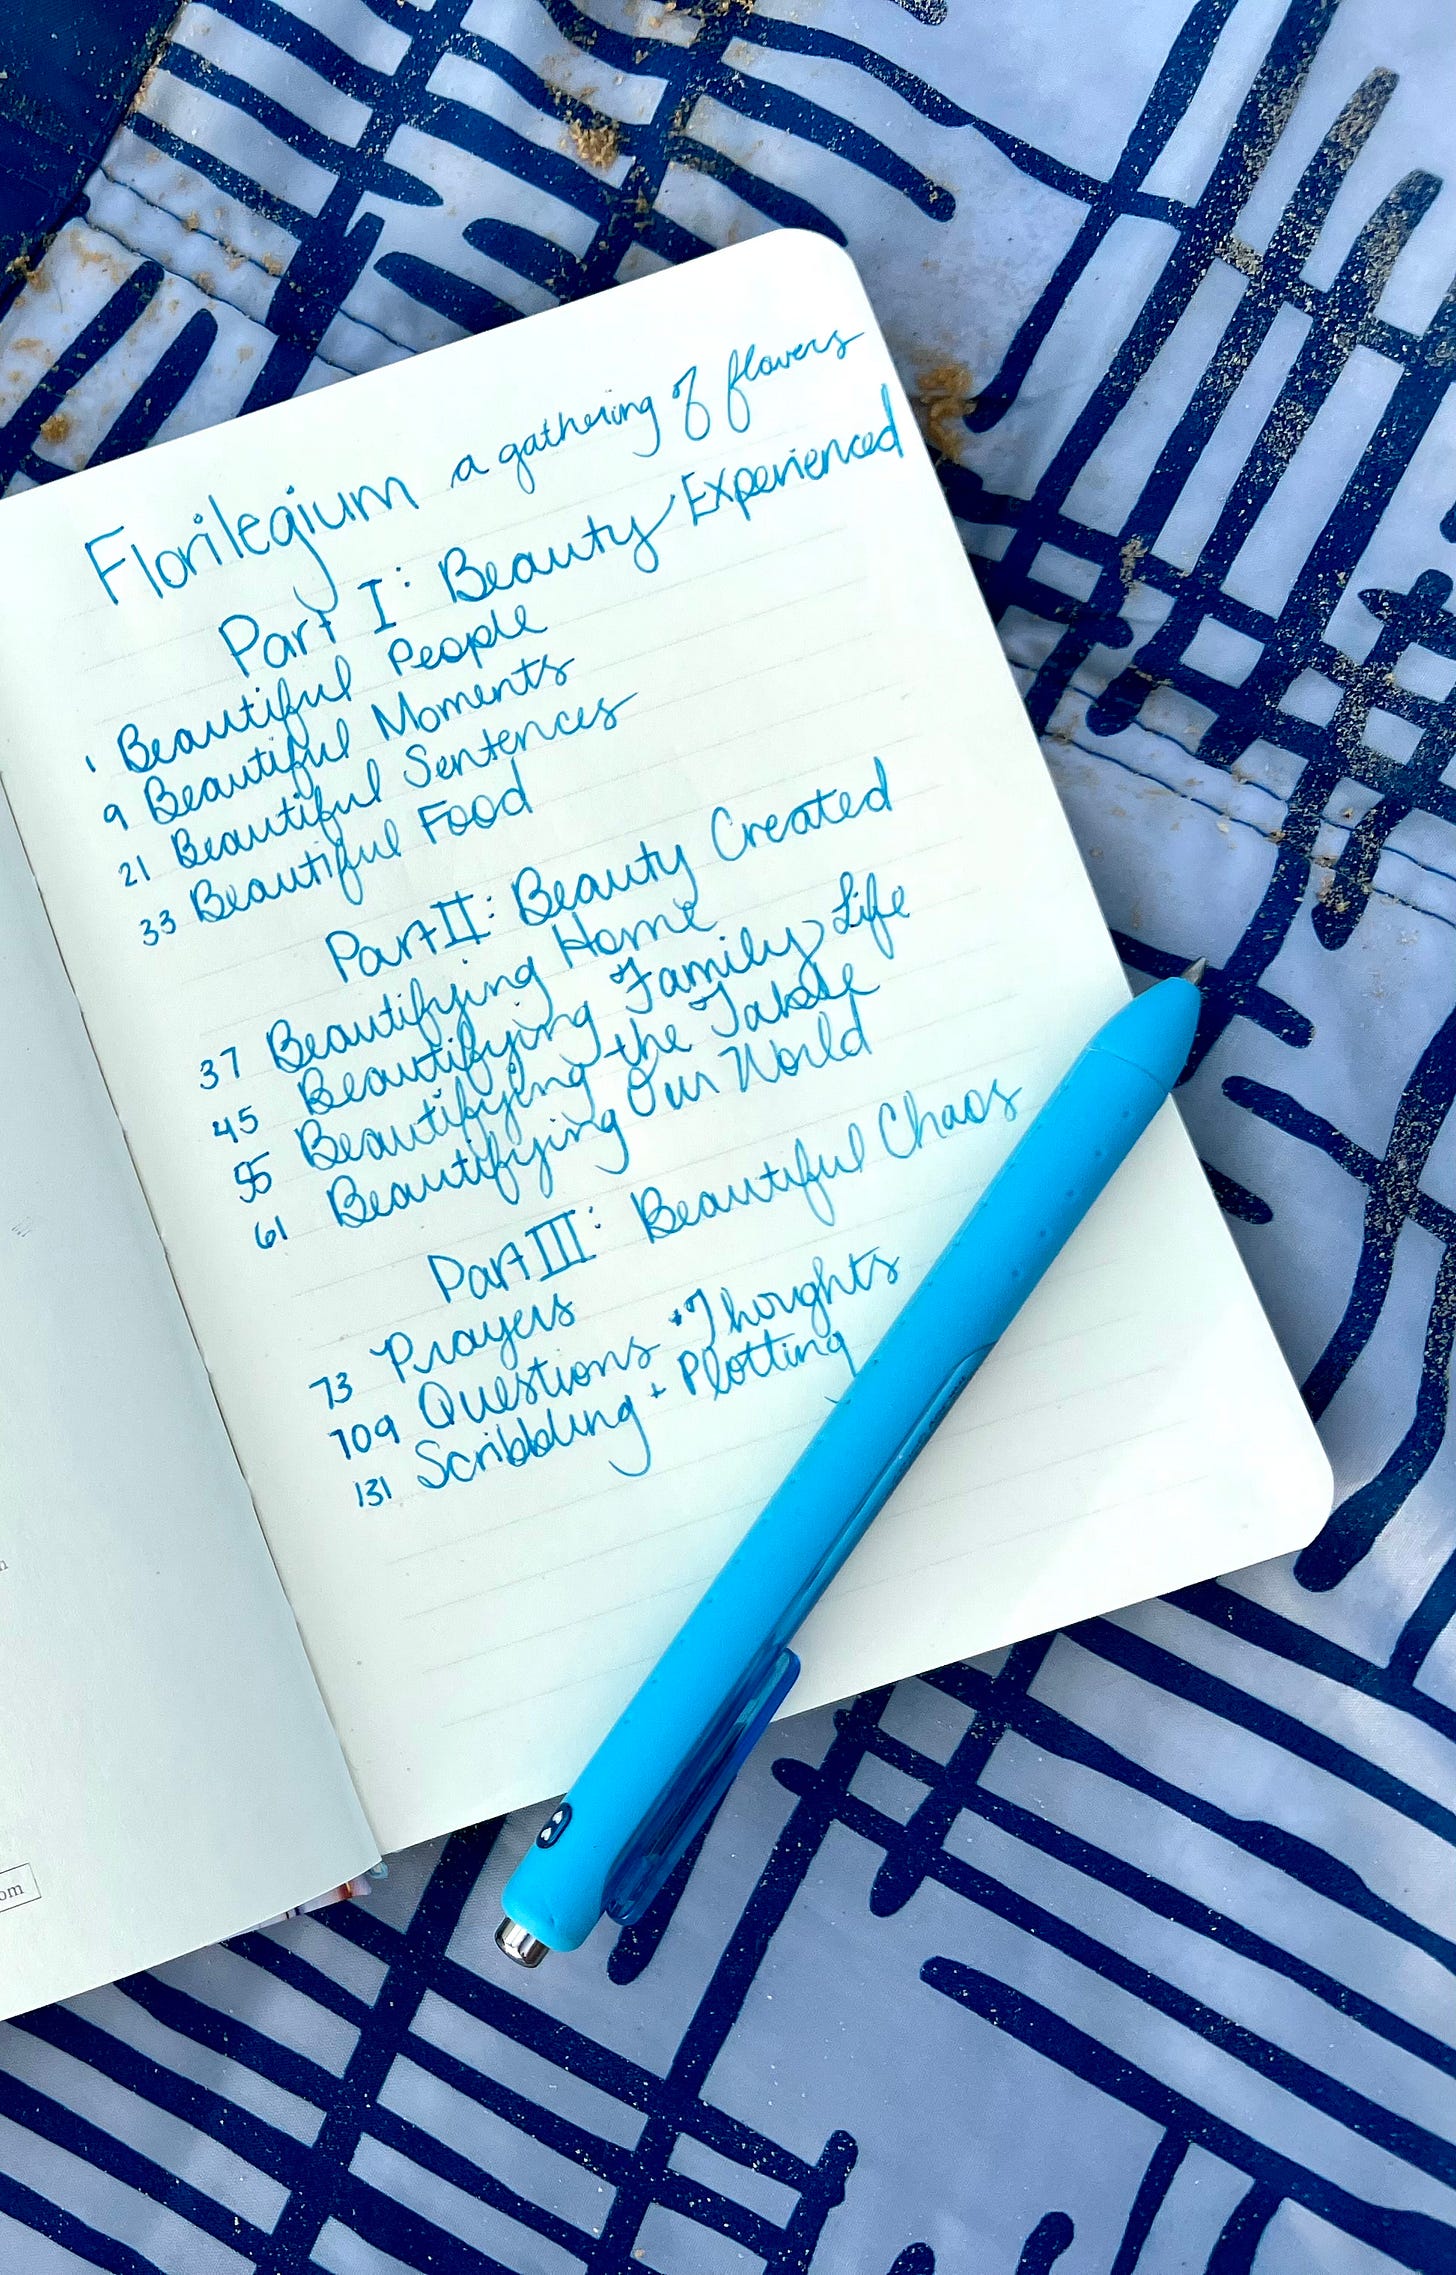 Florilegium a gathering of flowers
Part I: Beauty Experienced
1 Beautiful People
9 Beautiful Moments
21 Beautiful Sentences
33 Beautiful Food
Part II: Beauty Created
37 Beautifying Home
45 Beautifying Family Life
55 Beautifying the Table
61 Beautifying Our World
Part III: Beautiful Chaos
73 Prayers
109 Questions + Thoughts
131 Scribbling + Plotting
om